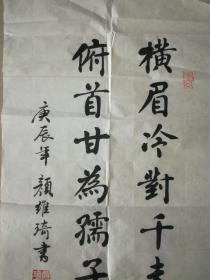 橫眉冷對千夫
俯首甘為孺子
庚辰年 顏維琦書